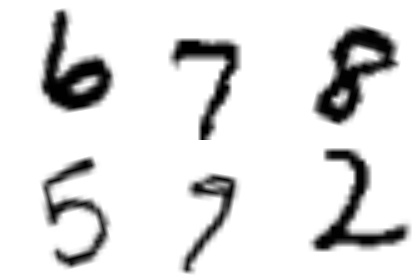 6 7 8
5 7 2